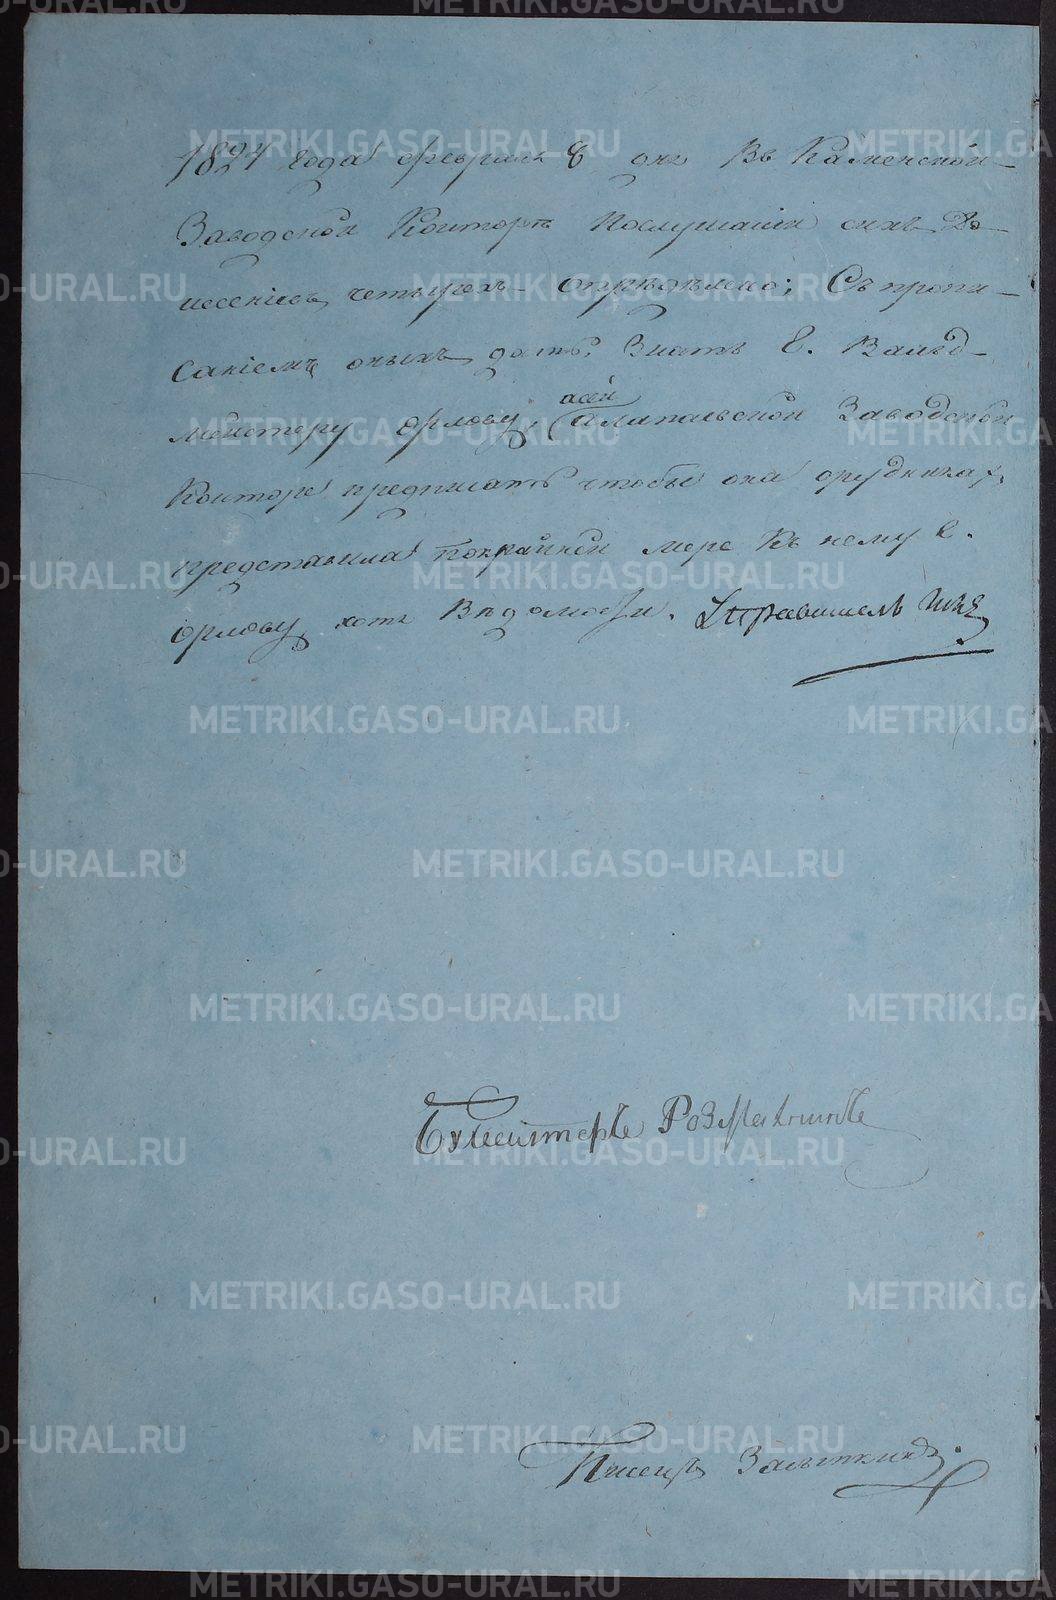 1824 года февраля 8 дня Въ Каменской
Заводской Конторѣ Послушании сихъ До
несениевъ четырехъ опредѣлено; Съ пропи
саниемъ оныхъ дать знать Г. Вальд
мейстеру орлову, а сей
Алапаевской Заводской
Конторе предписать чтобы она орудникахъ
представила покрайней мере къ нему Г.
орлову хотя Вѣдомости. Управитель
Бухгалтеръ
Писецъ
METRIKI.GASO-URAL.RU